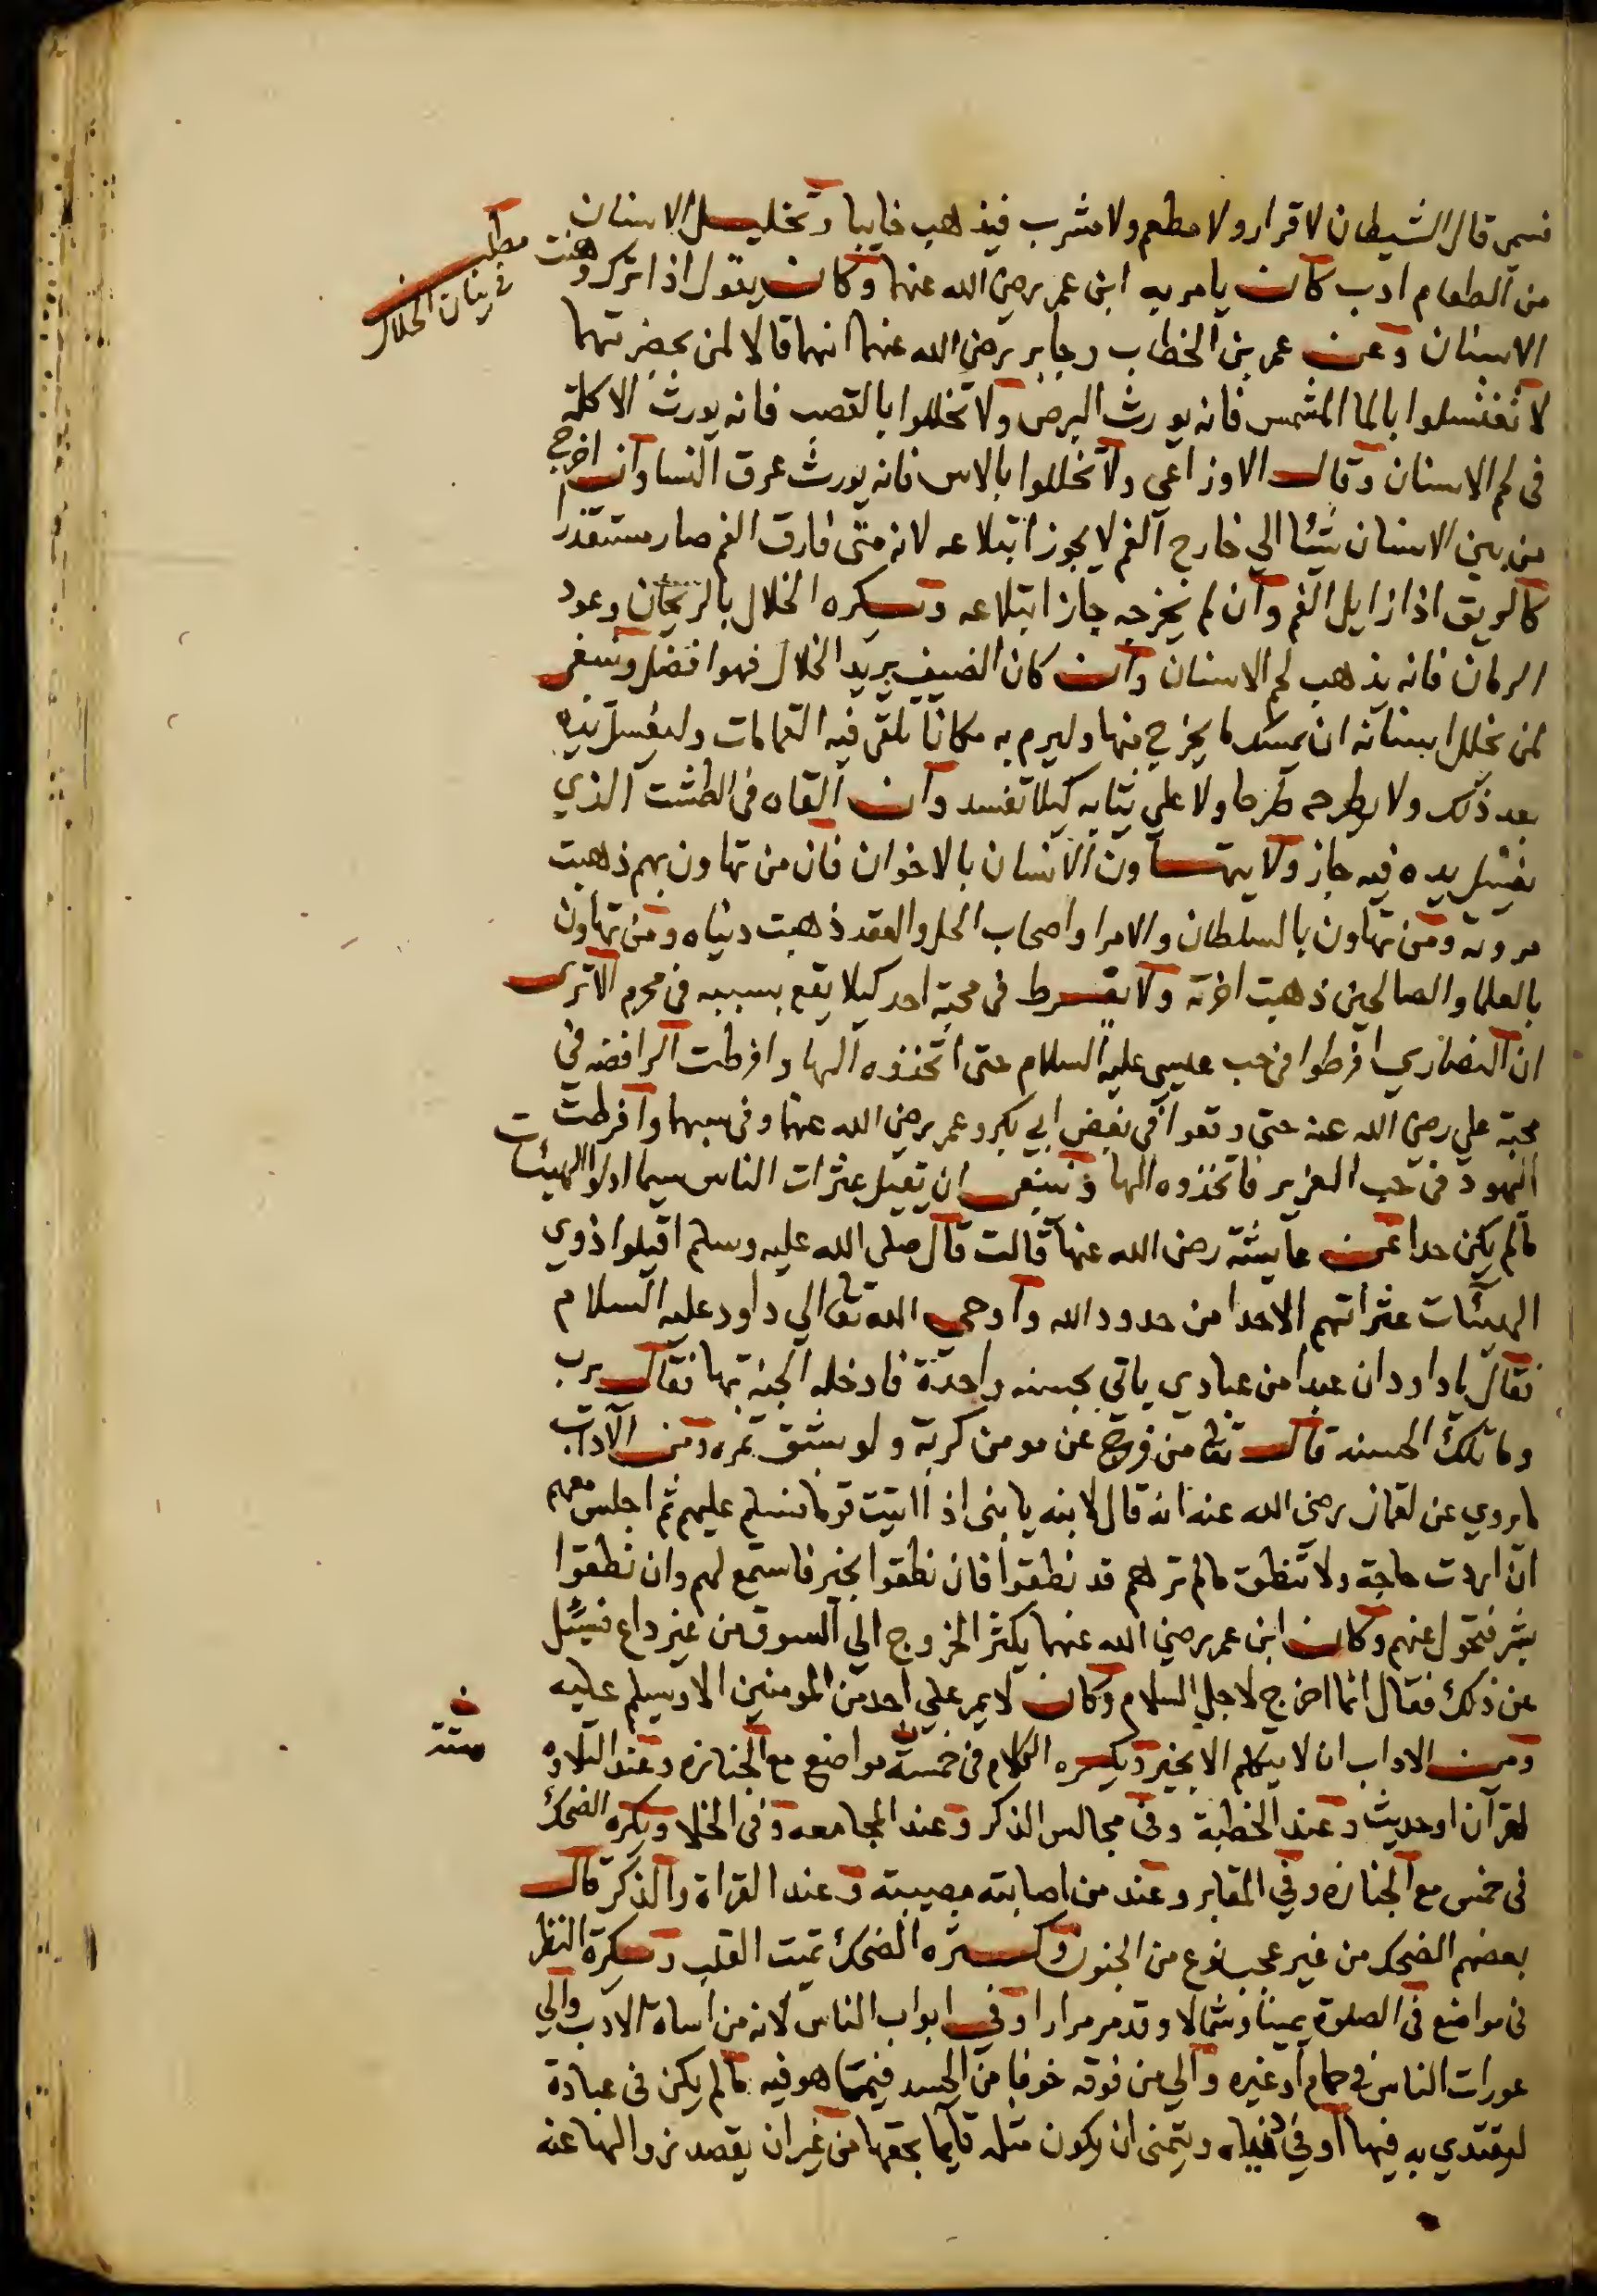 فسمى قال الشيطان لا قرار ولا مطعم ولا مشرب فيذهب خايبا وتخليل الاسنان
من الطعام ادب كان يامر به ابن عمر رضي الله عنهما وكان يقول اذا ترك وهنت
الاسنان وعن عمر بن الخطاب وجابر رضي الله عنهما انهما قالا لمن بحضرتهما
لا تغتسلوا بالما المشمس فانه يورث البرص ولا تخللوا بالقصب فانه يورث الاكلة
فى لحم الاسنان وقال الاوزاعي ولا تخللوا بالاس فانه يورث عرق النسا وان اخرج
من بين الاسنان شيئا الي خارج الفم لا يجوز ابتلاعه لانه متى فارق الفم صار مستقذرا
كالريق اذا زايل الفم وان لم يخرجه جاز ابتلاعه ويكره الخلال بالريحان وعود
الرمان فانه يذهب لحم الاسنان وان كان الضيف يريد الخلال فهو افضل وينبغى
لمن تخلل اسنانه ان يمسك ما يخرج منها وليرم به مكانا تلقى فيه القمامات وليغسل يديه
بعد ذلك ولا يطرحه طرحا ولا علي ثيابه كيلا تفسد وان القاه فى الطشت الذي
يغسل يده فيه جاز ولا يتهاون الانسان بالاخوان فان من تهاون بهم ذهبت
مروته ومن تهاون بالسلطان والامرا واصحاب الحل والعقد ذهبت دنياه ومن تهاون
بالعلما والصالحين ذهبت اخرته ولا يفرط فى محبة احد كيلا يقع بسببه فى محرم الا ترى
ان النصارى افرطوا فى حب عيسى عليه السلام حتى اتخذوه الها وافرطت الرافضه فى
محبة علي رضي الله عنه حتى وقعوا فى بغض ابي بكر وعمر رضي الله عنهما وفى سبهما وافرطت
اليهود فى حب العزير فاتخذوه الها وينبغى ان تقيل عثرات الناس سيما اولوا الهيئات
ما لم يكن حدا عن عايشة رضى الله عنها قالت قال صلى الله عليه وسلم اقيلوا ذوي
الهيئات عثراتهم الا حدا من حدود الله واوحى الله تعالى الي داود عليه السلام
فقال يا داود ان عبدا من عبادي ياتي بحسنه واحدة فادخله الجنة بها فقال يرب
وما تلك الحسنه قال تعالى من فرج عن مومن كربة ولو بشق تمره ومن الاداب
ما روي عن لقمان رضى الله عنه انه قال لابنه يا بنى اذا اتيت قوما فسلم عليهم ثم اجلس معهم
ان اردت حاجة ولا تنطق ما لم ترهم قد نطقوا فان نطقوا بخير فاستمع لهم وان نطقوا
بشر فتحول عنهم وكان ابن عمر رضي الله عنهما يكثر الخروج الي السوق من غير داع فسئل
عن ذلك فقال انما اخرج لاجل السلام وكان لا يمر علي احد من المومنين الا ويسلم عليه
ومن الاداب ان لا يتكلم الا بخير ويكره الكلام فى خمسة مواضع مع الجنازه وعند التلاوه
لقرآن او حديث وعند الخطبة وفى مجالس الذكر وعند المجامعه وفى الخلا ويكره الضحك
فى خمس مع الجنازه وفي المقابر وعند من اصابته مصيبة وعند القراة والذكر قال
بعضهم الضحك من غير عجب نوع من الجنون وكثره الضحك تميت القلب ويكره النظر
فى مواضع فى الصلوة يمينا وشمالا وقد مر مرارا وفي ابواب الناس لانه من اساة الادب والي
عورات الناس فى حمام او غيره والي من فوقه خوفا من الحسد فيما هو فيه ما لم يكن فى عبادة
ليقتدي به فيها او في دنياه ويتمنى ان يكون مثله قايما بحقها من غير ان يقصد زوالها عنه
مطلب
فى بيان الخلال